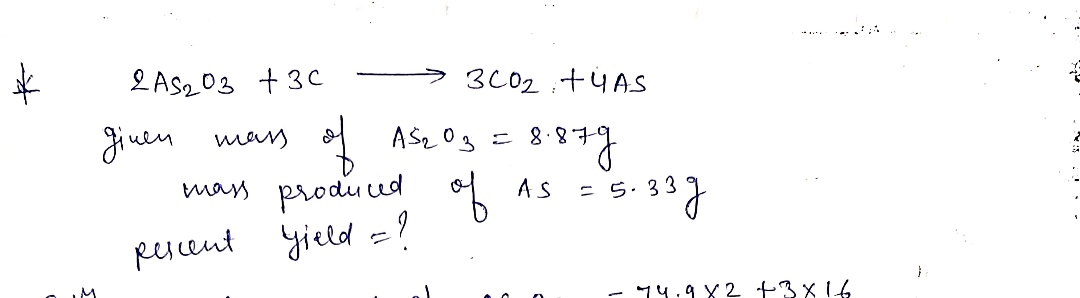 * 2As2O3 + 3C → 3CO2 + 4As
given mass of As2O3 = 8.87g
mass produced of As = 5.33g
percent yield = ?
= 74.9×2 + 3×16